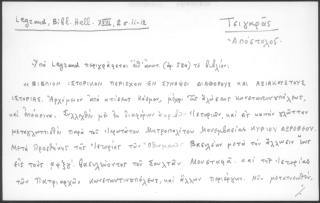 Legrand, Bibl. Hell. XVII, 25.11-12
Τσιγαρᾶς
Ἀπόστολος.
Ὑπὸ Legrand περιγράφεται (ἀρ. 580) τὸ βιβλίον:
ΒΙΒΛΙΟΝ ΙΣΤΟΡΙΚΟΝ ΠΕΡΙΕΧΟΝ ΕΝ ΣΥΝΟΨΕΙ ΔΙΑΦΟΡΟΥΣ ΚΑΙ ΑΞΙΑΚΟΥΣΤΟΥΣ
ΙΣΤΟΡΙΑΣ. Ἀρχόμενον ἀπὸ κτίσεως κόσμου, μέχρι τῆς ἁλώσεως Κωνσταντινουπόλεως,
καὶ ἐπέκεινα. Συλλεχθὲν μὲν ἐκ διαφόρων ἱστοριῶν, καὶ εἰς κοινὴν γλῶτταν
μεταγλωττισθὲν παρὰ τοῦ Ἱερωτάτου Μητροπολίτου Μονεμβασίας ΚΥΡΙΟΥ ΔΩΡΟΘΕΟΥ.
Μετὰ Προσθήκης τῆς Ἱστορίας τῶν Βασιλέων μετὰ τὴν ἅλωσιν ἕως
εἰς τοὺς βασιλεύοντος τοῦ Σουλτὰν Μουσταφᾶ. καὶ τῆς Ἱστορίας
τῶν Πατριαρχῶν Κωνσταντινουπόλεως, καὶ ἄλλων περιέργων. Νῦν